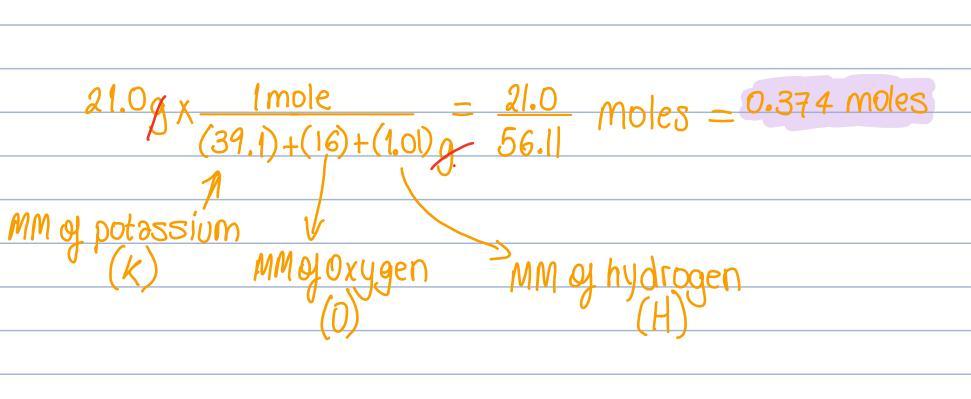 21.0g x 1 mole / (39.1)+(16)+(1.01) g = 21.0 / 56.11 moles = 0.374 moles
MM of potassium (K)
MM of Oxygen (O)
MM of hydrogen (H)